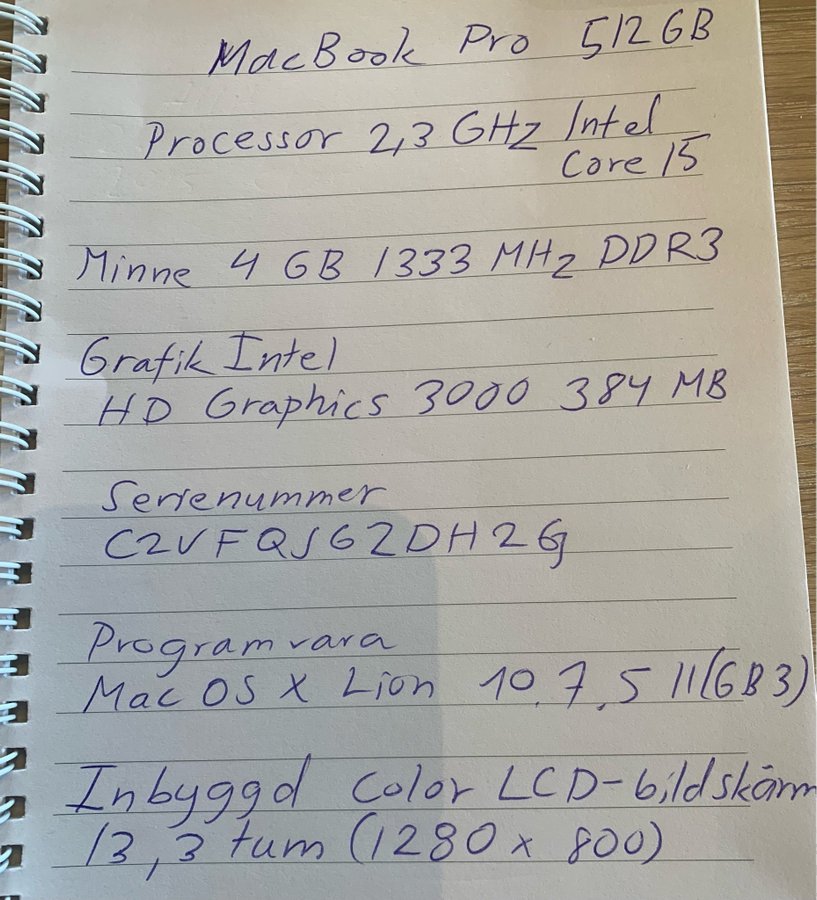 MacBook Pro 512GB
Processor 2,3 GHz Intel
Core i5
Minne 4 GB 1333 MHz DDR3
Grafik Intel
HD Graphics 3000 384 MB
Serienummer
C2VFQJ6ZDH2G
Programvara
Mac OS X Lion 10.7.5 11(GB3)
Inbyggd Color LCD-bildskärm
13,3 tum (1280 x 800)